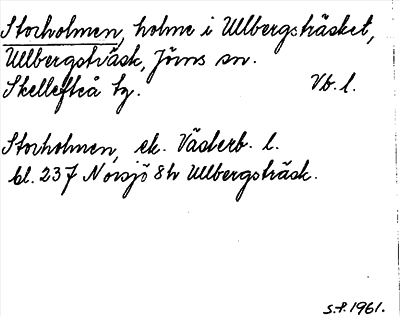 Storholmen, holme i Ullbergsträsket,
Ullbergsträsk, Jörns sn.
Skellefteå tg. Vb. l.
Storholmen, ek. Västerb. l.
bl. 237 Norsjö 8h Ullbergsträsk.
S.F. 1961.